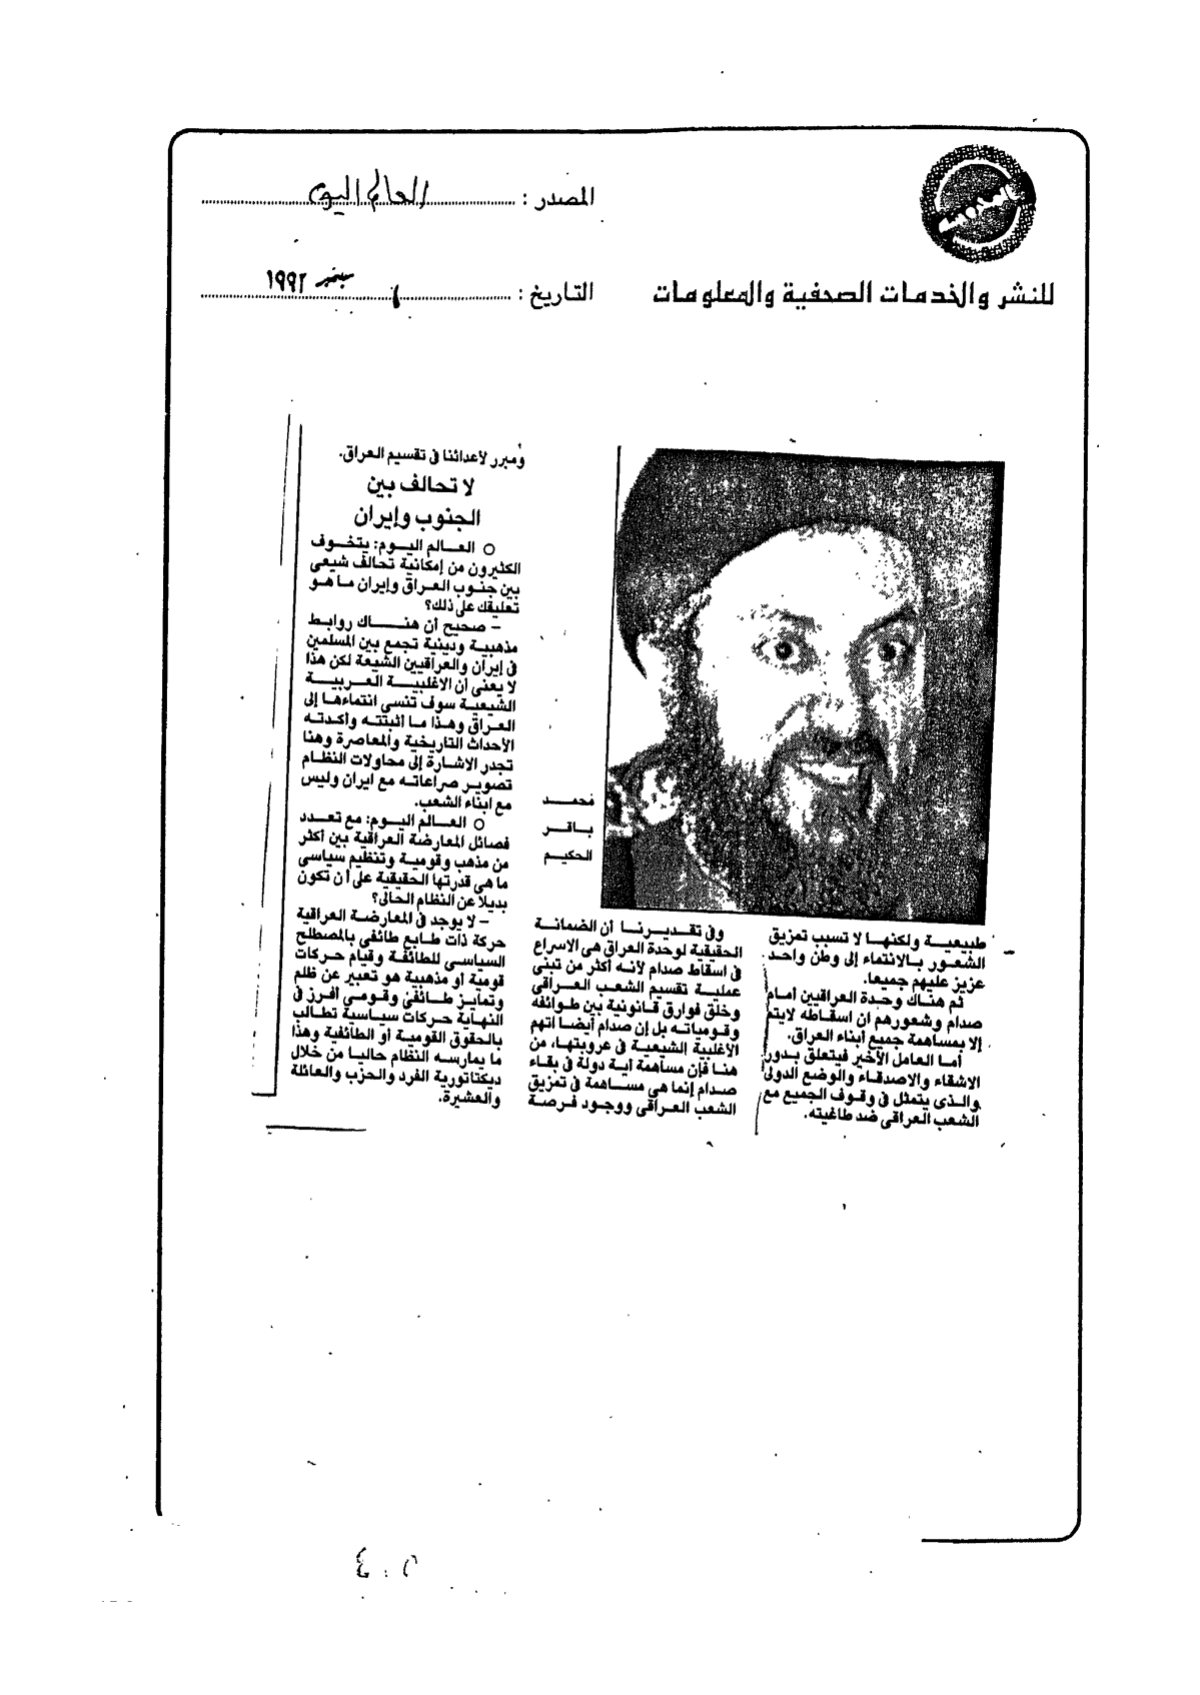 المصدر : العالم اليوم
للنشر والخدمات الصحفية والمعلومات
التاريخ : سبتمبر ١٩٩٢
محمد
باقر
الحكيم
طبيعية ولكنها لا تسبب تمزيق
الشعور بالانتماء إلى وطن واحد
عزيز عليهم جميعا.
ثم هناك وحدة العراقيين أمام
صدام وشعورهم ان اسقاطه لايتم
إلا بمساهمة جميع أبناء العراق.
أما العامل الأخير فيتعلق بدور
الاشقاء والاصدقاء والوضع الدولى
والذى يتمثل فى وقوف الجميع مع
الشعب العراقى ضد طاغيته.
وفى تقديرنا أن الضمانة
الحقيقية لوحدة العراق هى الاسراع
فى اسقاط صدام لأنه أكثر من تبنى
عملية تقسيم الشعب العراقى
وخلق فوارق قانونية بين طوائفه
وقومياته بل إن صدام أيضا اتهم
الأغلبية الشيعية فى عروبتها، من
هنا فإن مساهمة أية دولة فى بقاء
صدام إنما هى مساهمة فى تمزيق
الشعب العراقى ووجود فرصة
ومبرر لأعدائنا فى تقسيم العراق.
لا تحالف بين
الجنوب وإيران
○ العالم اليوم: يتخوف
الكثيرون من إمكانية تحالف شيعى
بين جنوب العراق وإيران ما هو
تعليقك على ذلك؟
– صحيح أن هناك روابط
مذهبية ودينية تجمع بين المسلمين
فى إيران والعراقيين الشيعة لكن هذا
لا يعنى أن الاغلبية العربية
الشيعية سوف تنسى انتماءها إلى
العراق وهذا ما أثبتته وأكدته
الأحداث التاريخية والمعاصرة وهنا
تجدر الاشارة إلى محاولات النظام
تصوير صراعاته مع ايران وليس
مع ابناء الشعب.
○ العالم اليوم: مع تعدد
فصائل المعارضة العراقية بين أكثر
من مذهب وقومية وتنظيم سياسى
ما هى قدرتها الحقيقية على أن تكون
بديلا عن النظام الحالى؟
– لا يوجد فى المعارضة العراقية
حركة ذات طابع طائفى بالمصطلح
السياسى للطائفة وقيام حركات
قومية أو مذهبية هو تعبير عن ظلم
وتمايز طائفى وقومى أفرز فى
النهاية حركات سياسية تطالب
بالحقوق القومية أو الطائفية وهذا
ما يمارسه النظام حاليا من خلال
ديكتاتورية الفرد والحزب والعائلة
والعشيرة.